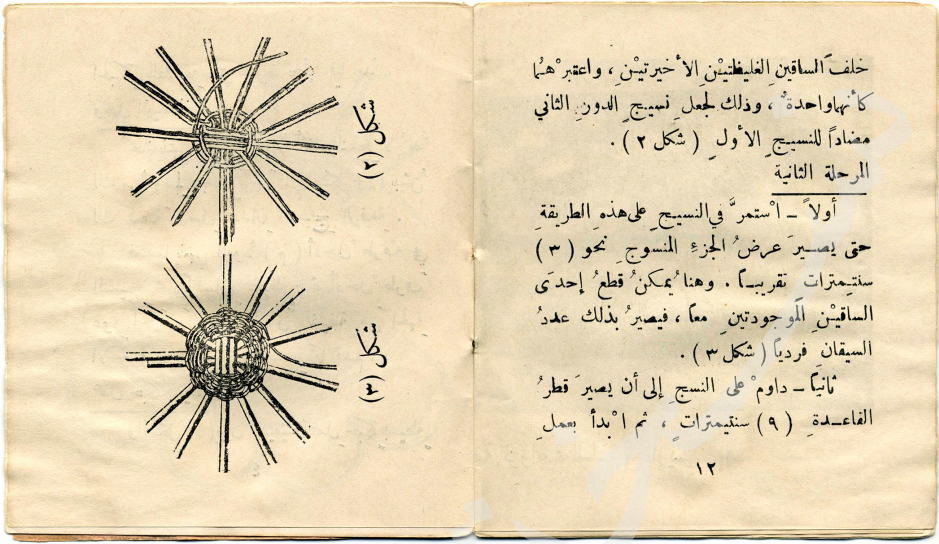 خلفَ الساقينِ الغليظتيْنِ الأخيرتيْنِ ، واعتبرْهُما
كأنهما واحدةٌ ، وذلك لجعلِ نسيجِ الدورِ الثاني
مضاداً للنسيجِ الأولِ ( شكل ٢ ) .
المرحلة الثانية
أولاً – اسْتمرَّ في النسيجِ على هذهِ الطريقةِ
حتى يصيرَ عرضُ الجزءِ المنسوجِ نحو ( ٣ )
سنتيمتراتٍ تقريباً . وهنا يُمكنُ قطعُ إحدَى
الساقيْنِ الموجودتينِ معاً ، فيصيرُ بذلك عددُ
السيقانِ فردياً ( شكل ٣ ) .
ثانياً – داومْ على النسجِ إلى أن يصيرَ قطرُ
القاعدةِ ( ٩ ) سنتيمتراتٍ ، ثم ابْدأ بعملِ
١٢
شكل (٢)
شكل (٣)